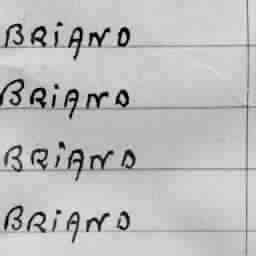 BRiANO
BRiANO
BRiANO
BRiANO